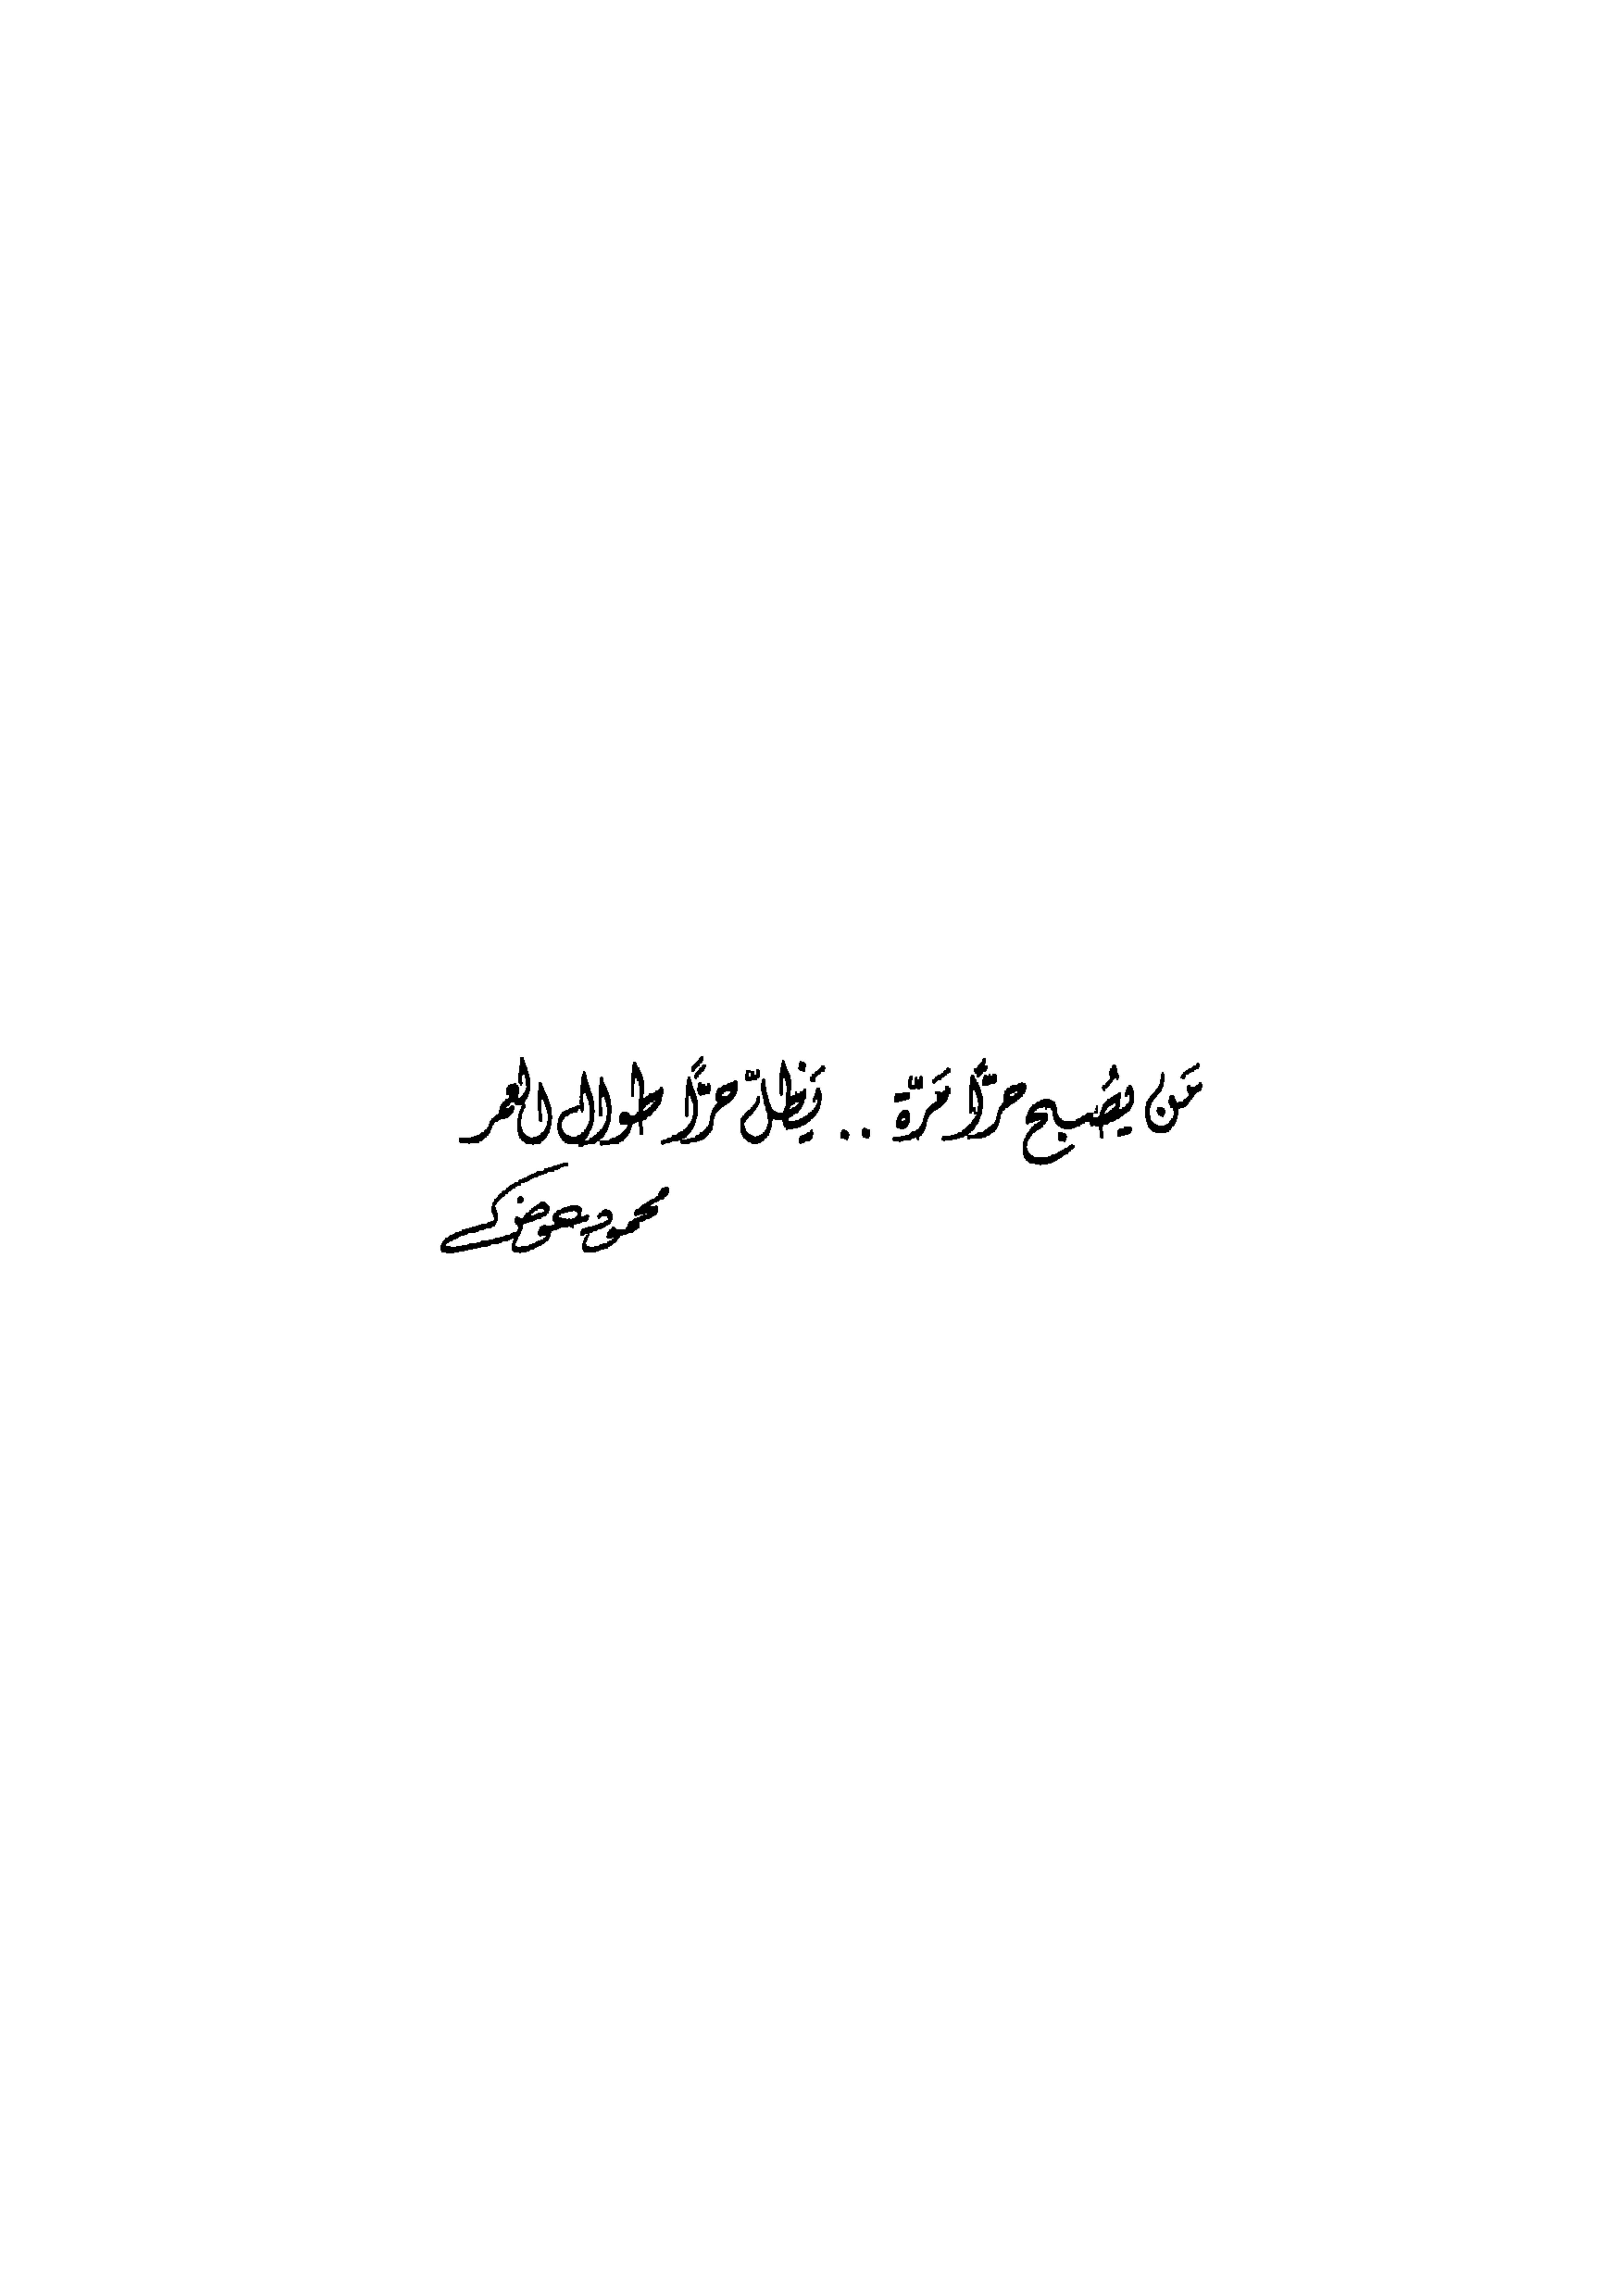 مَن يصُبح حرًّا مَرّة .. يَظلّ حرًّا طوال العمر
محمود عوض